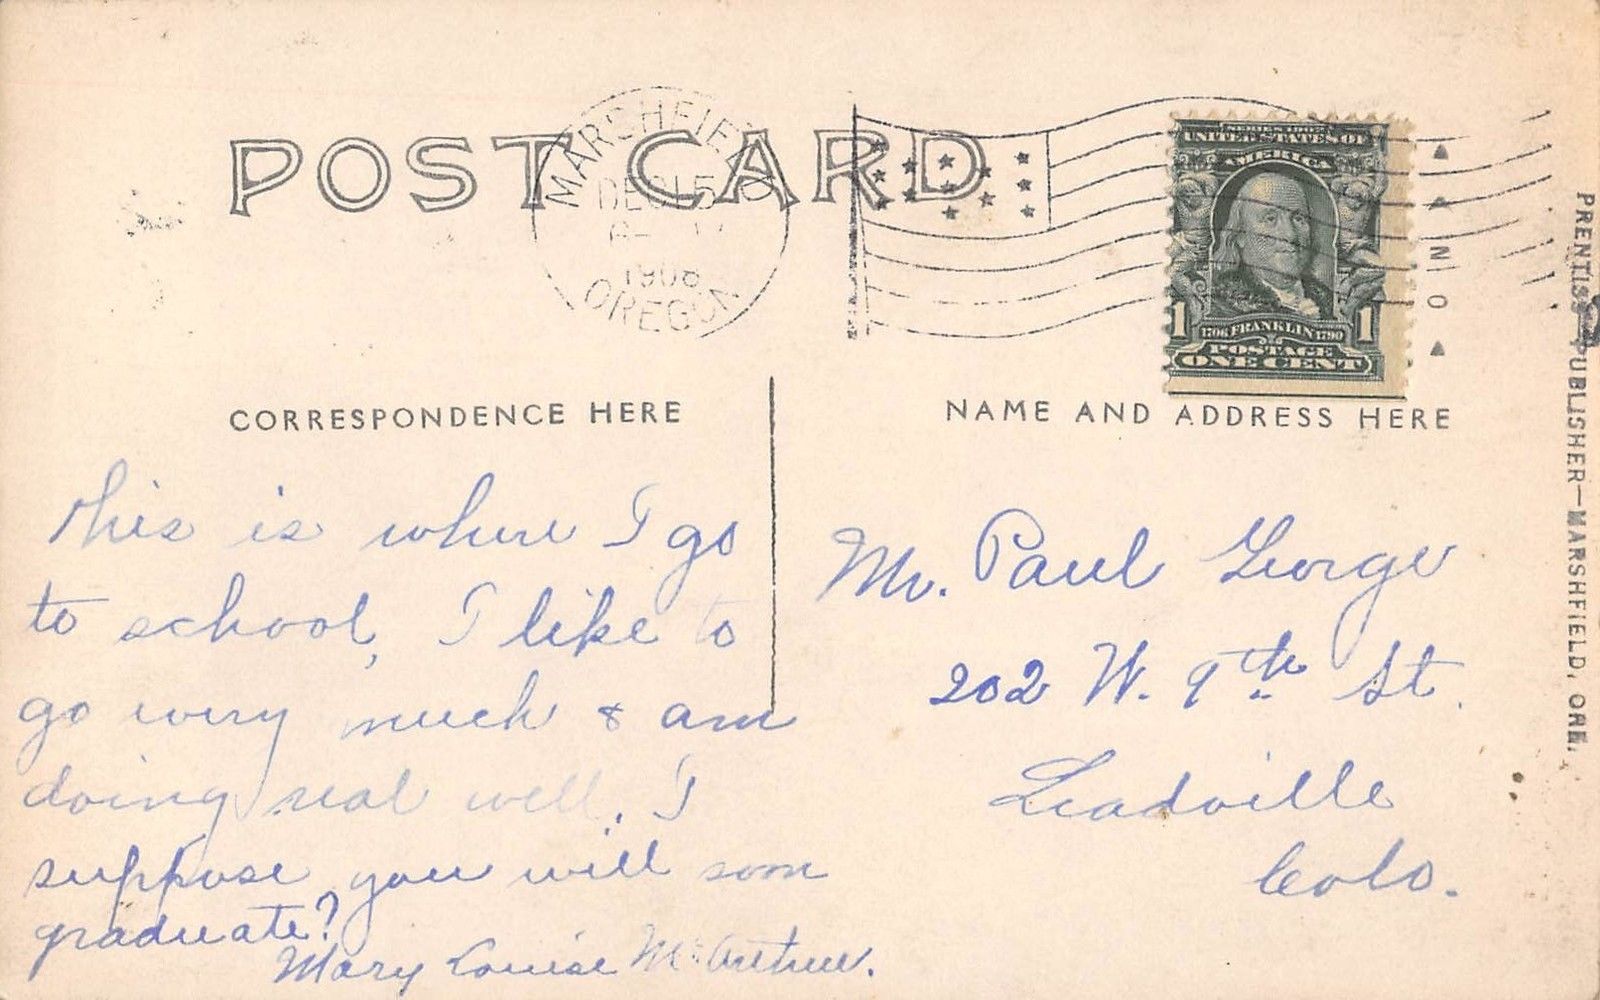 POST CARD
MARSHFIELD
DEC 15
1908
OREGON
UNITED STATES OF
AMERICA
1 1706 FRANKLIN 1790 1
POSTAGE
ONE CENT
CORRESPONDENCE HERE
NAME AND ADDRESS HERE
This is where I go
to school, I like to
go very much & am
doing real well. I
suppose you will soon
graduate?
Mary Louise McArthur.
Mr. Paul George
202 W. 9th St.
Leadville
Colo.
PRENTISS—PUBLISHER—MARSHFIELD, ORE.